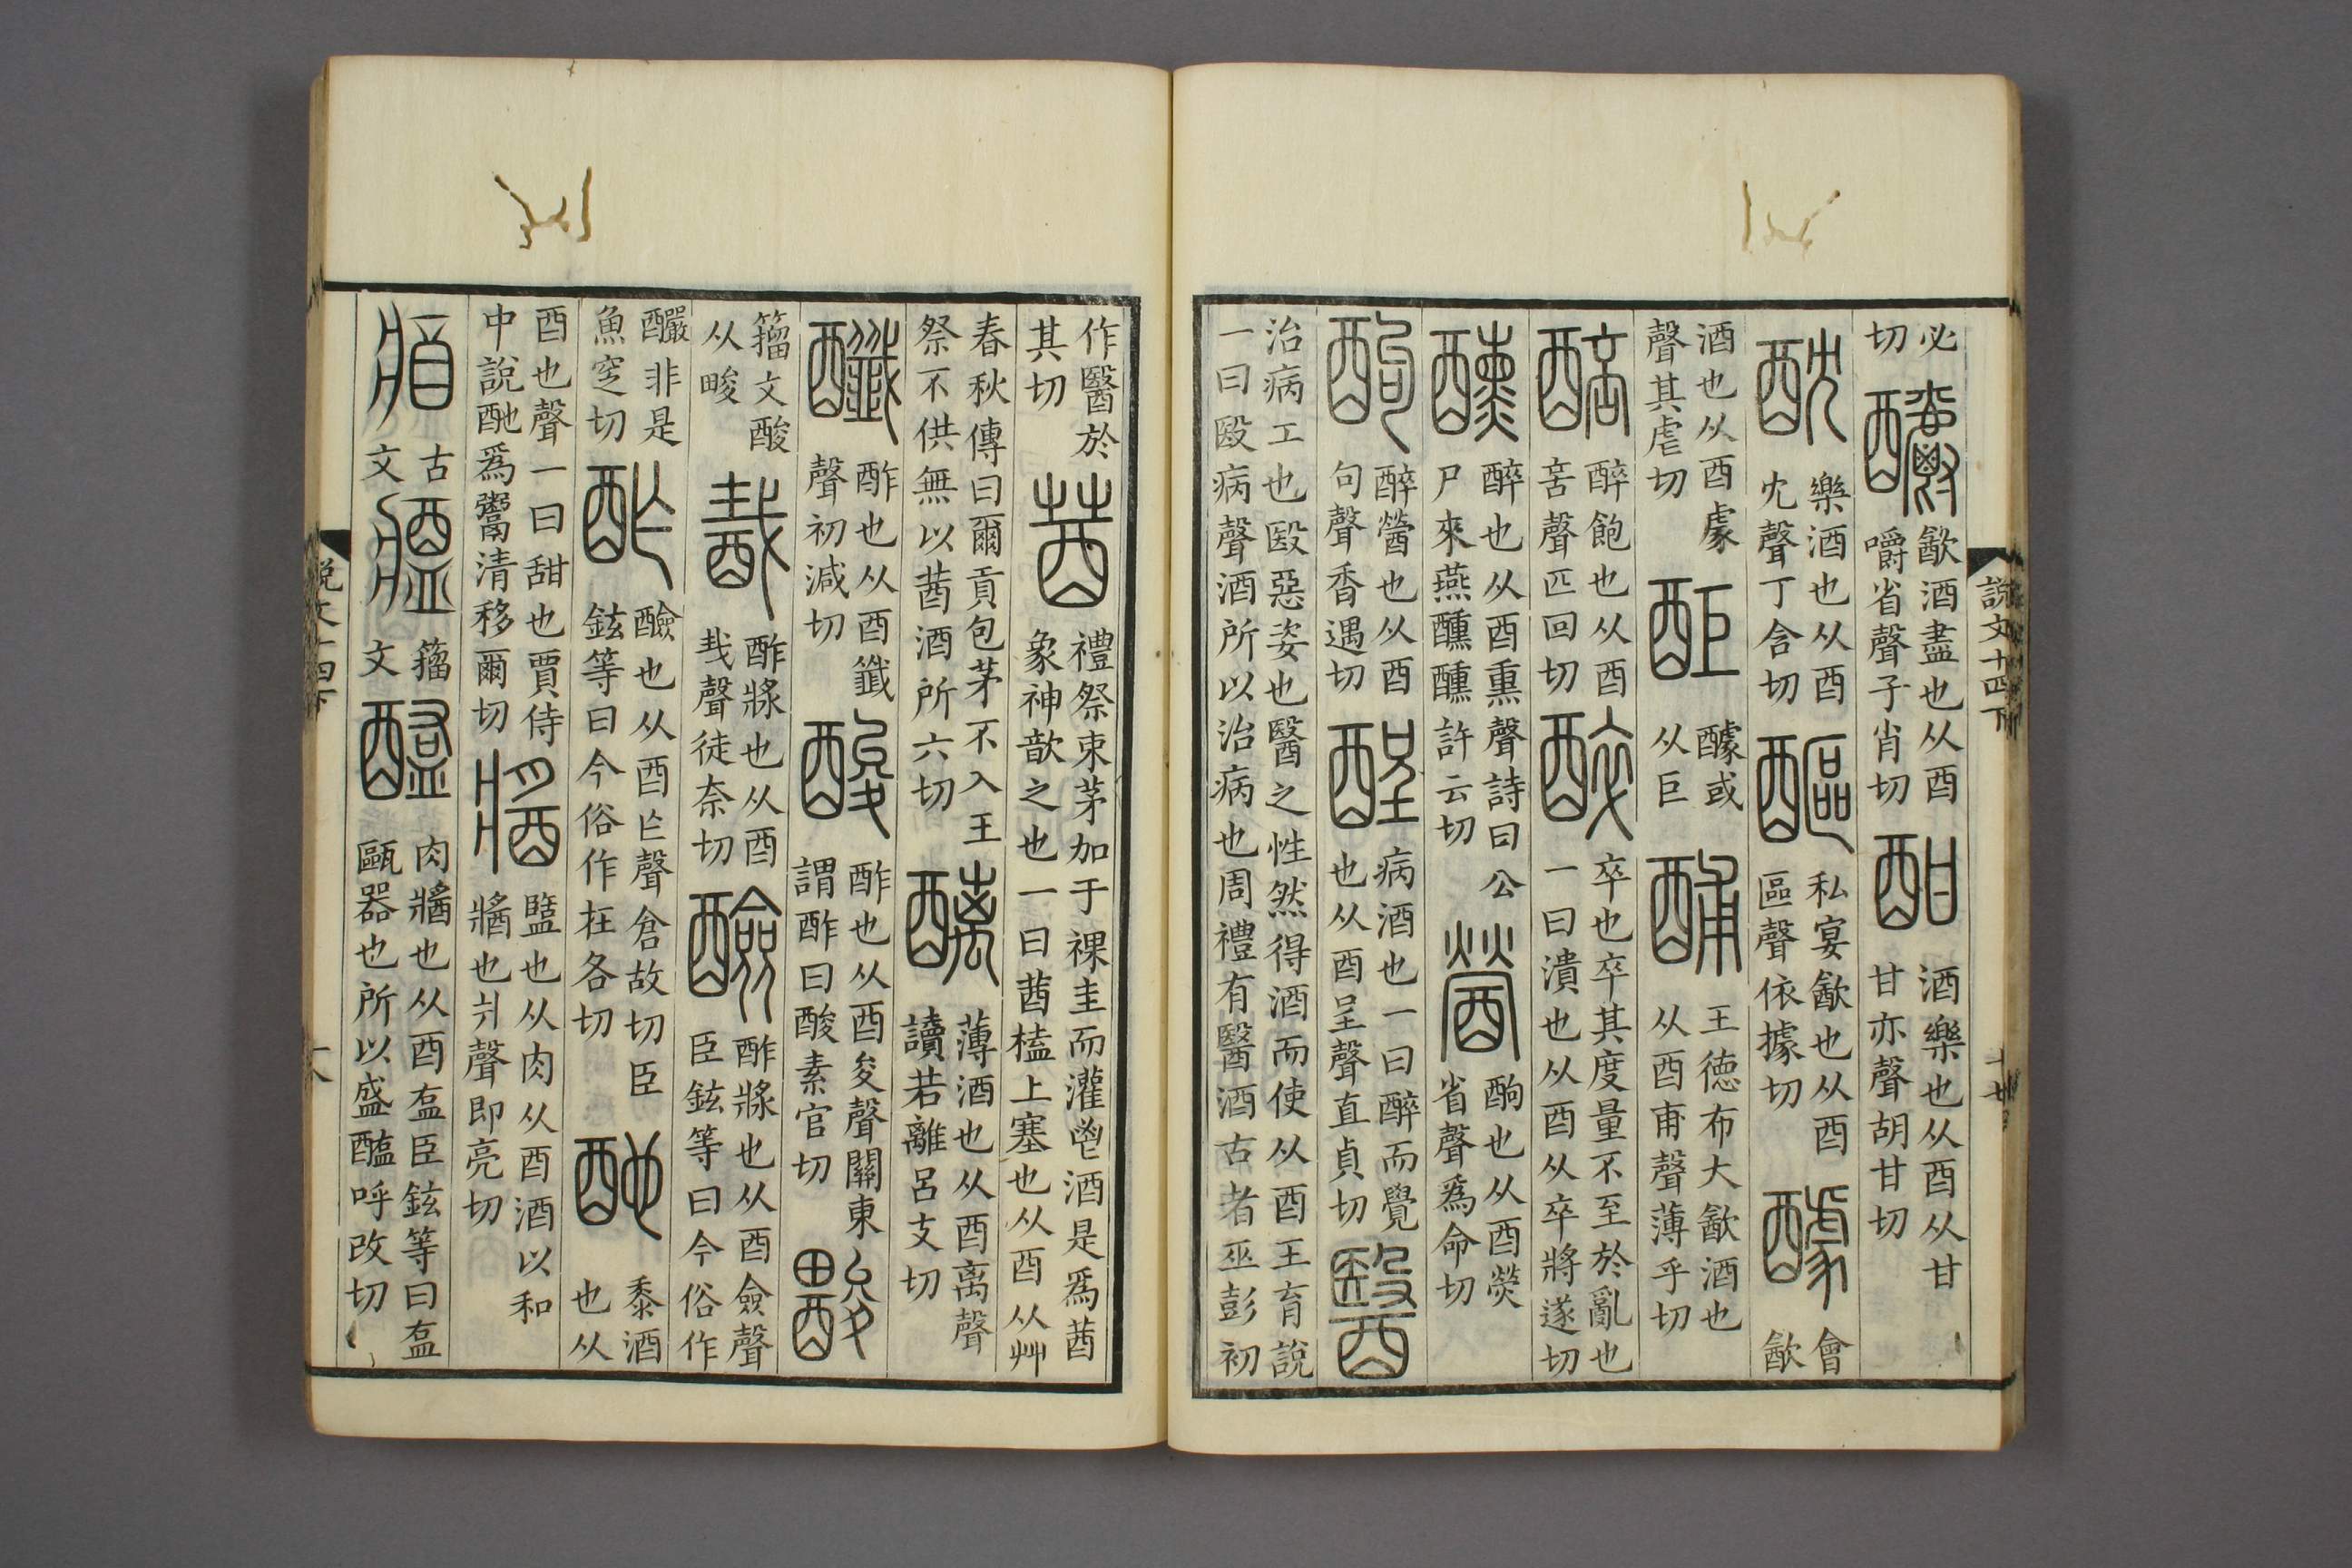 說文十四下
十七
必切 釂 㱃酒盡也从酉嚼省聲子肖切 酣 酒樂也从酉从甘甘亦聲胡甘切
酖 樂酒也从酉冘聲丁含切 醧 私宴㱃也从酉區聲依據切 醵 會㱃
酒也从酉豦聲其虐切 醵或从巨 酺 王德布大㱃酒也从酉甫聲薄乎切
醅 醉飽也从酉咅聲匹回切 醉 卒也卒其度量不至於亂也一曰潰也从酉从卒將遂切
醺 醉也从酉熏聲詩曰公尸來燕醺醺許云切 醟 酗也从酉熒省聲爲命切
酗 醉醟也从酉句聲香遇切 酲 病酒也一曰醉而覺也从酉呈聲直貞切 醫
治病工也殹惡姿也醫之性然得酒而使从酉王育說一曰殹病聲酒所以治病也周禮有醫酒古者巫彭初
作醫於其切 莤 禮祭束茅加于祼圭而灌鬯酒是爲莤象神歆之也一曰莤榼上塞也从酉从艸
春秋傳曰爾貢包茅不入王祭不供無以莤酒所六切 醨 薄酒也从酉离聲讀若離呂支切
酢也从酉韱聲初減切 酸 酢也从酉夋聲關東謂酢曰酸素官切
籒文酸从畯 酨 酢漿也从酉𢦏聲徒奈切 醶 酢漿也从酉僉聲臣鉉等曰今俗作
釅非是魚窆切 酢 醶也从酉乍聲倉故切臣鉉等曰今俗作在各切 酏 黍酒也从
酉也聲一曰甜也賈侍中說酏爲鬻清移爾切 醬 盬也从肉从酉酒以和醬也爿聲即亮切
古文 籒文 醢 肉醬也从酉𥁓臣鉉等曰𥁓甌器也所以盛醢呼改切
說文十四下
十八